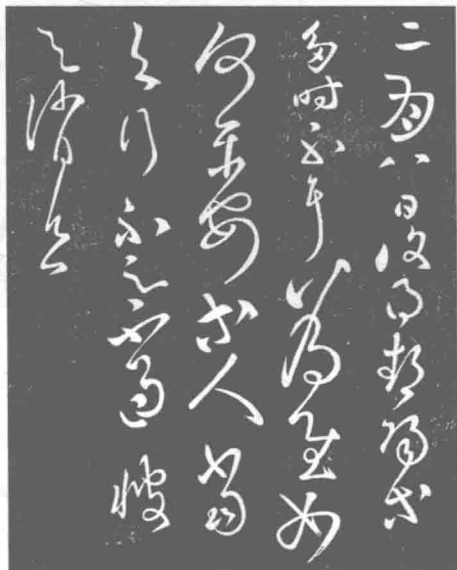 二月八日復得鄱陽等
多時不耳以為慰如
何平安等人當
與行不足不過